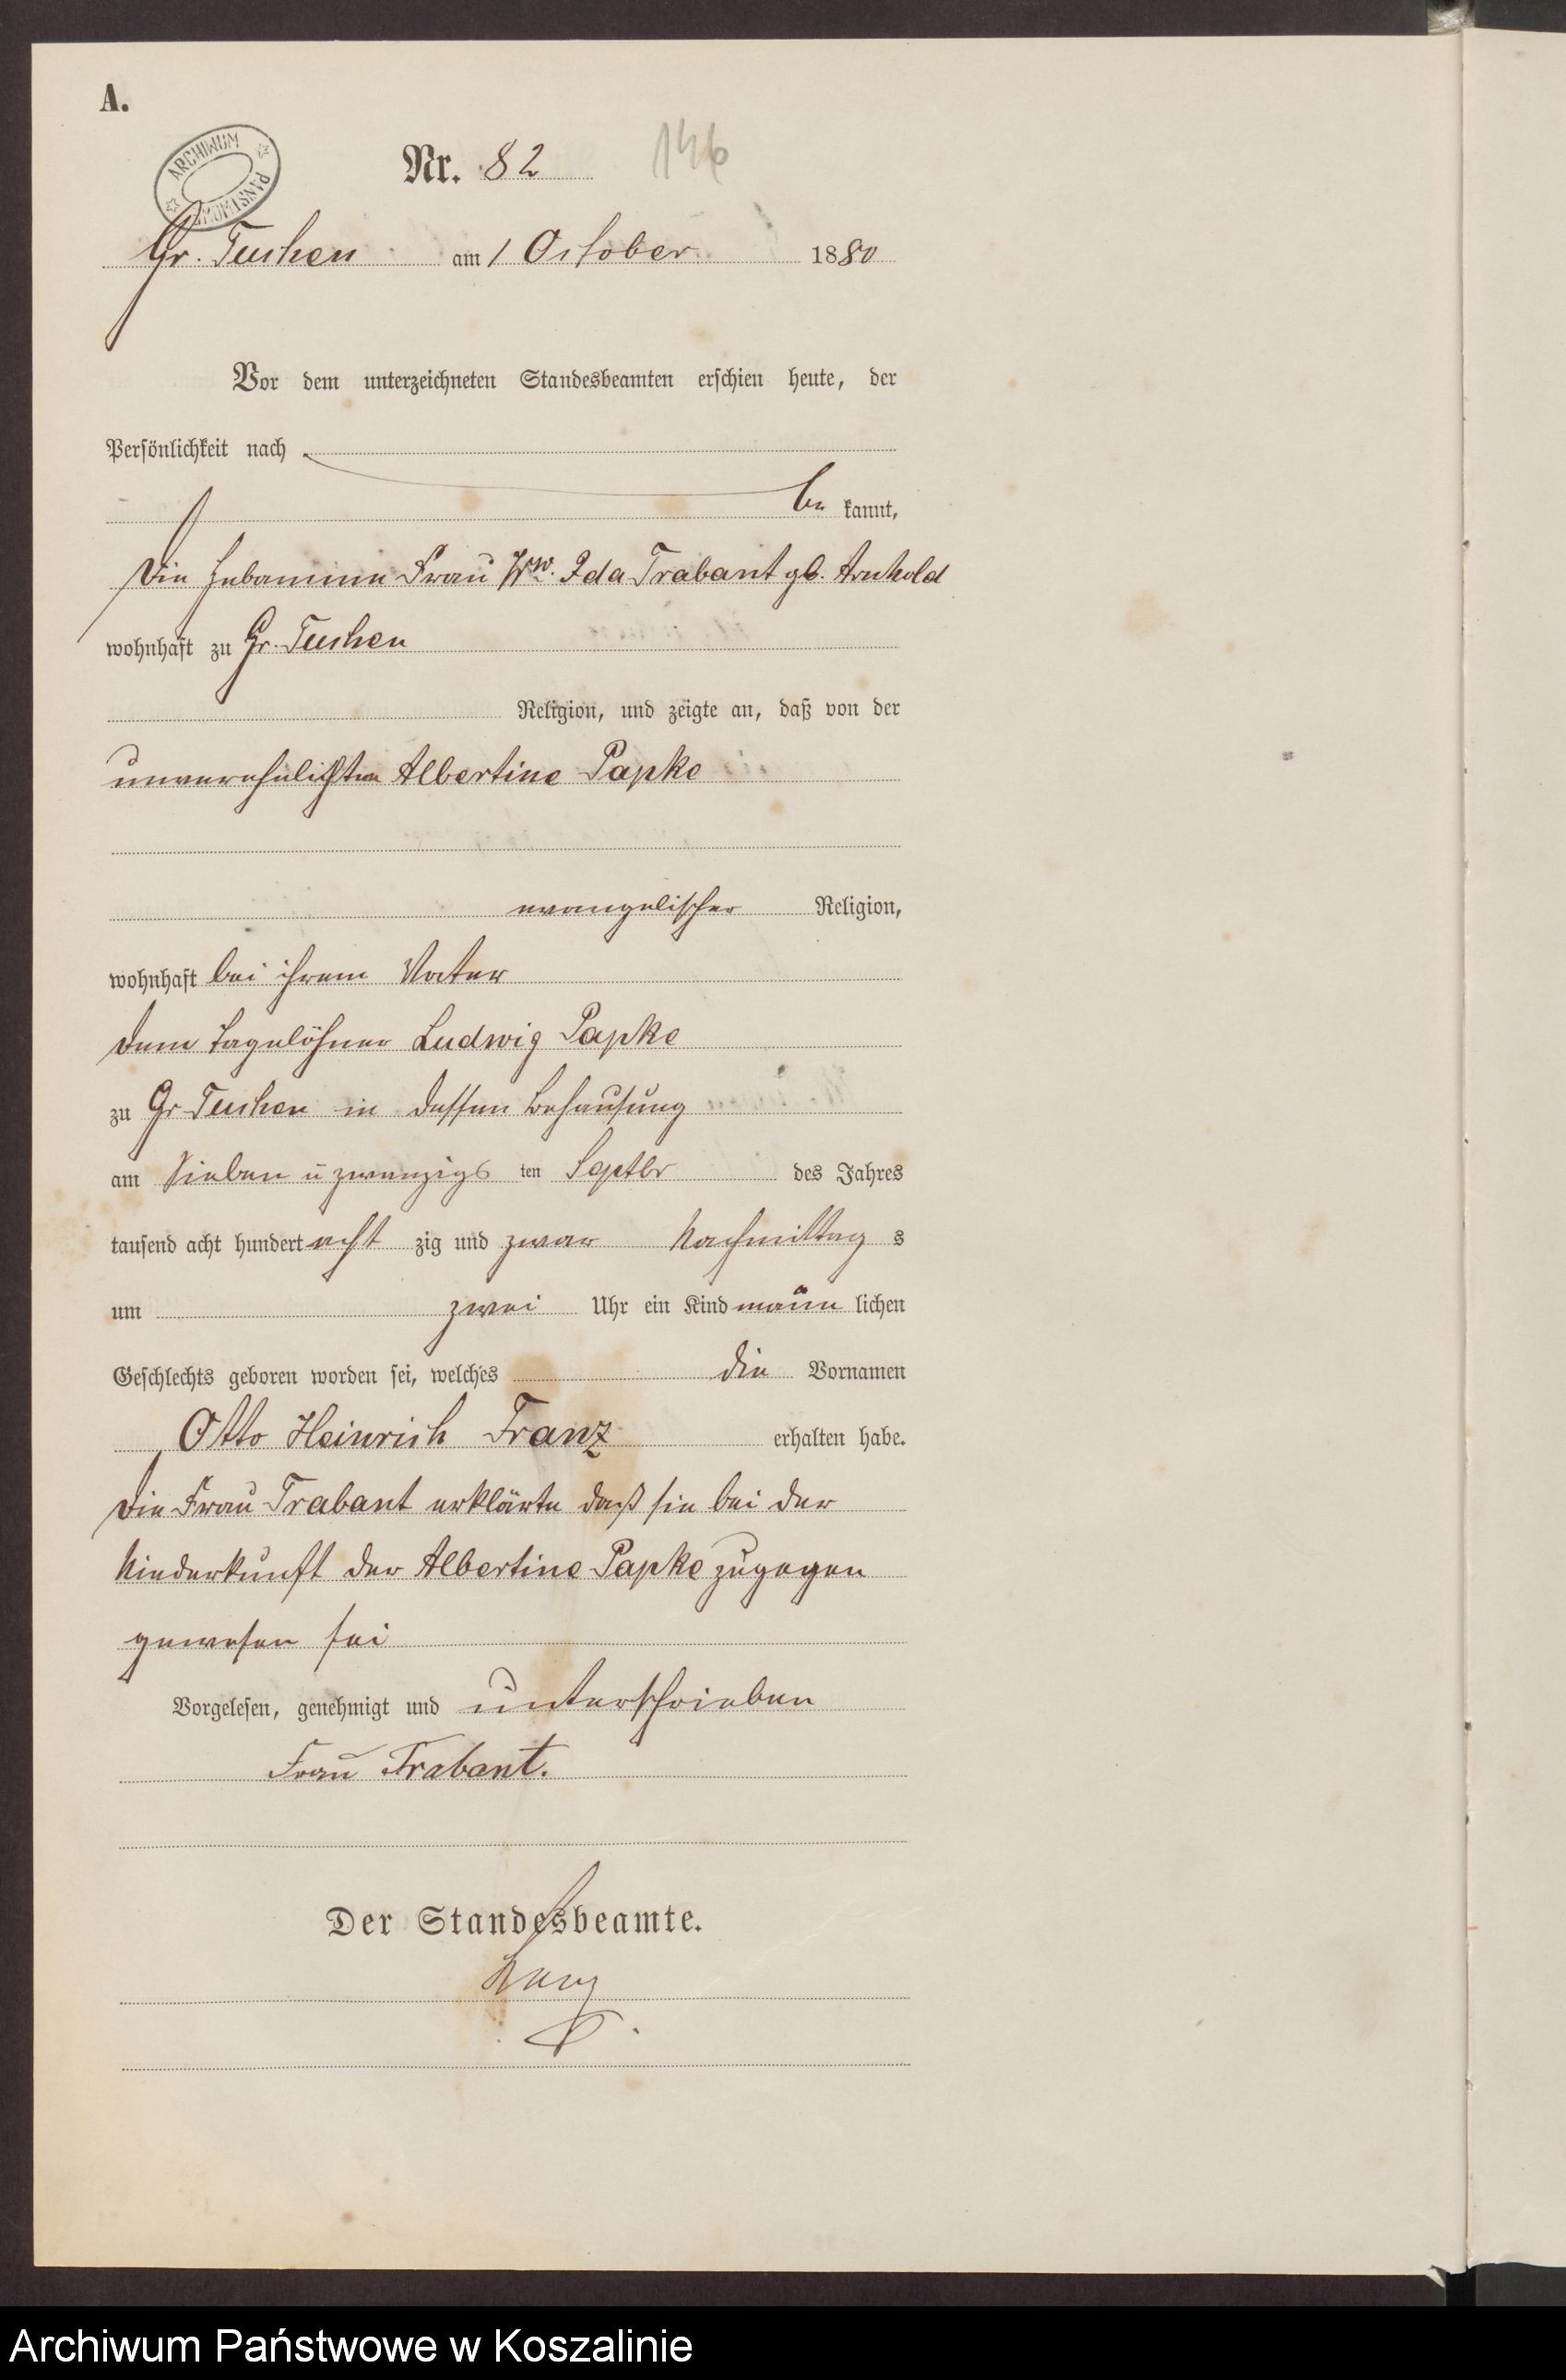 A.
ARCHIWUM PAŃSTWOWE
Nr. 82 146
Gr. Tuchen am 1 October 1880
Vor dem unterzeichneten Standesbeamten erschien heute, der
Persönlichkeit nach
be kannt,
Die Hebamme Frau Ww. Ida Trabant gb. Arnhold
wohnhaft zu Gr. Tuchen
Religion, und zeigte an, daß von der
unverehelichten Albertine Papke
evangelischer Religion,
wohnhaft bei ihrem Vater
dem Tagelöhner Ludwig Papke
zu Gr Tuchen in dessen Behausung
am Sieben u zwanzigs ten Septbr des Jahres
tausend acht hundert acht zig und zwar Nachmittag s
um zwei Uhr ein Kind männ lichen
Geschlechts geboren worden sei, welches die Vornamen
Otto Heinrich Franz erhalten habe.
Die Frau Trabant erklärte daß sie bei der
Niederkunft der Albertine Papke zugegen
gewesen sei
Vorgelesen, genehmigt und unterschrieben
Frau Trabant.
Der Standesbeamte.
Archiwum Państwowe w Koszalinie